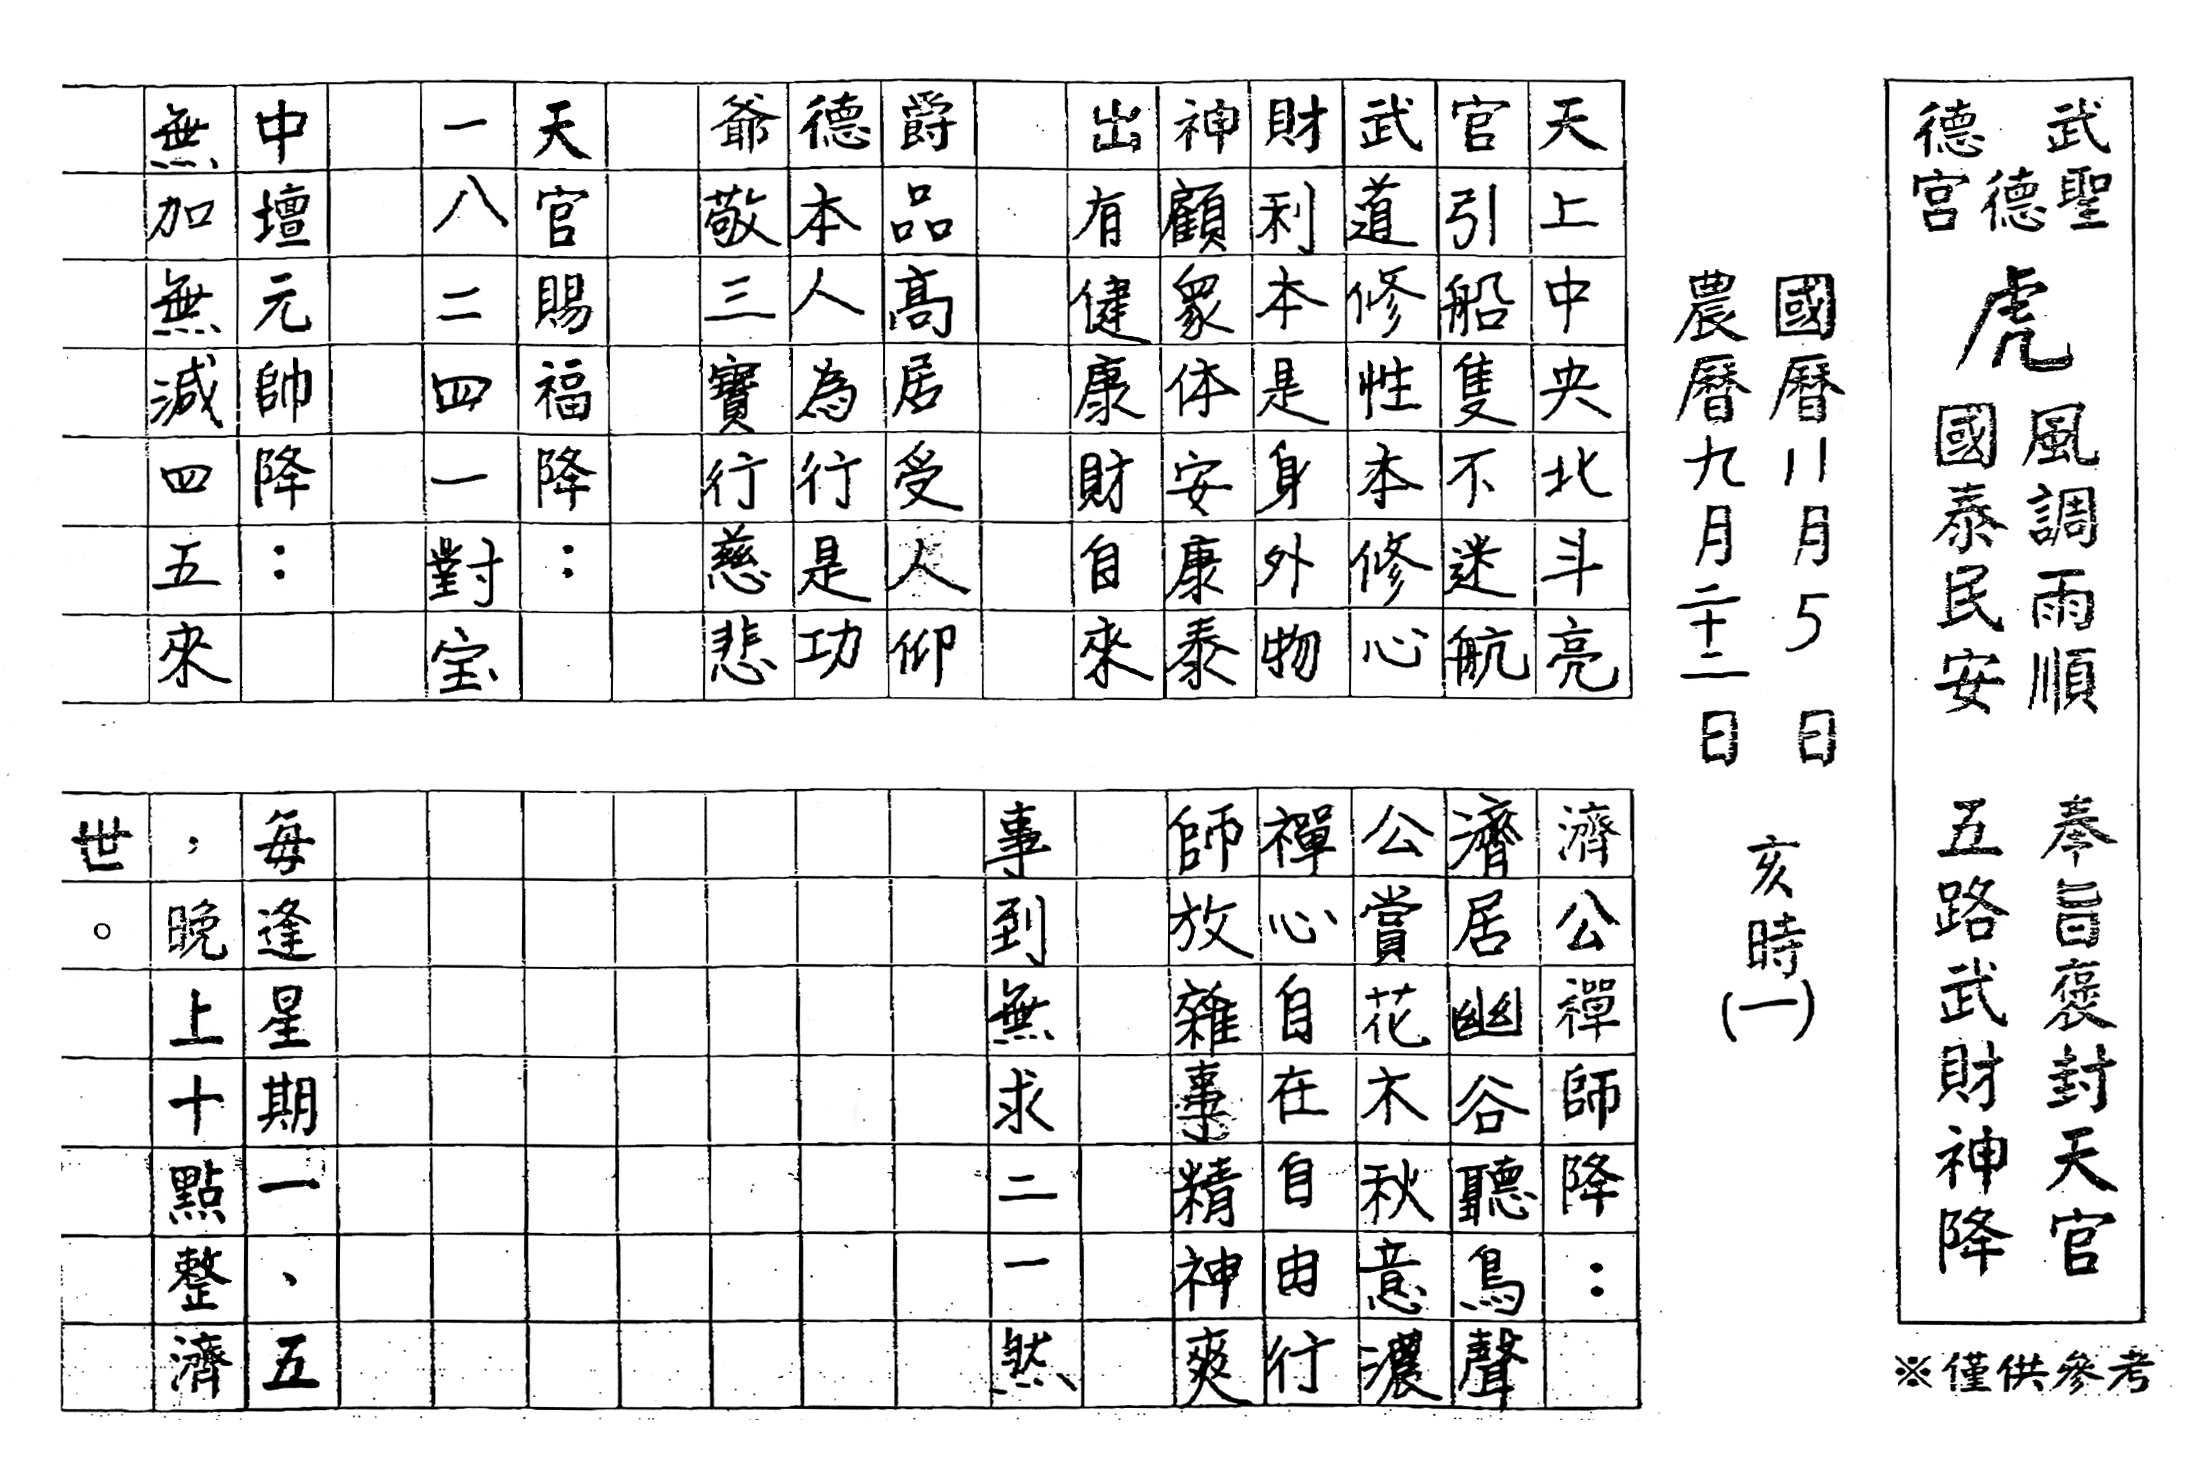 武聖德德宮
虎
風調雨順
國泰民安
奉旨褒封天官
五路武財神降
※僅供參考
國曆11月5日
農曆九月二十二日
亥時(一)
天上中央北斗亮
官引船隻不迷航
武道修性本修心
財利本是身外物
神顧眾体安康泰
出有健康財自來
爵品高居受人仰
德本人為行是功
爺敬三寶行慈悲
天官賜福降：
一八二四一對宝
中壇元帥降：
無加無減四五來
濟公禪師降：
濟居幽谷聽鳥聲
公賞花木秋意濃
禪心自在自由行
師放雜事精神爽
事到無求二一然
每逢星期一、五
，晚上十點整濟
世。